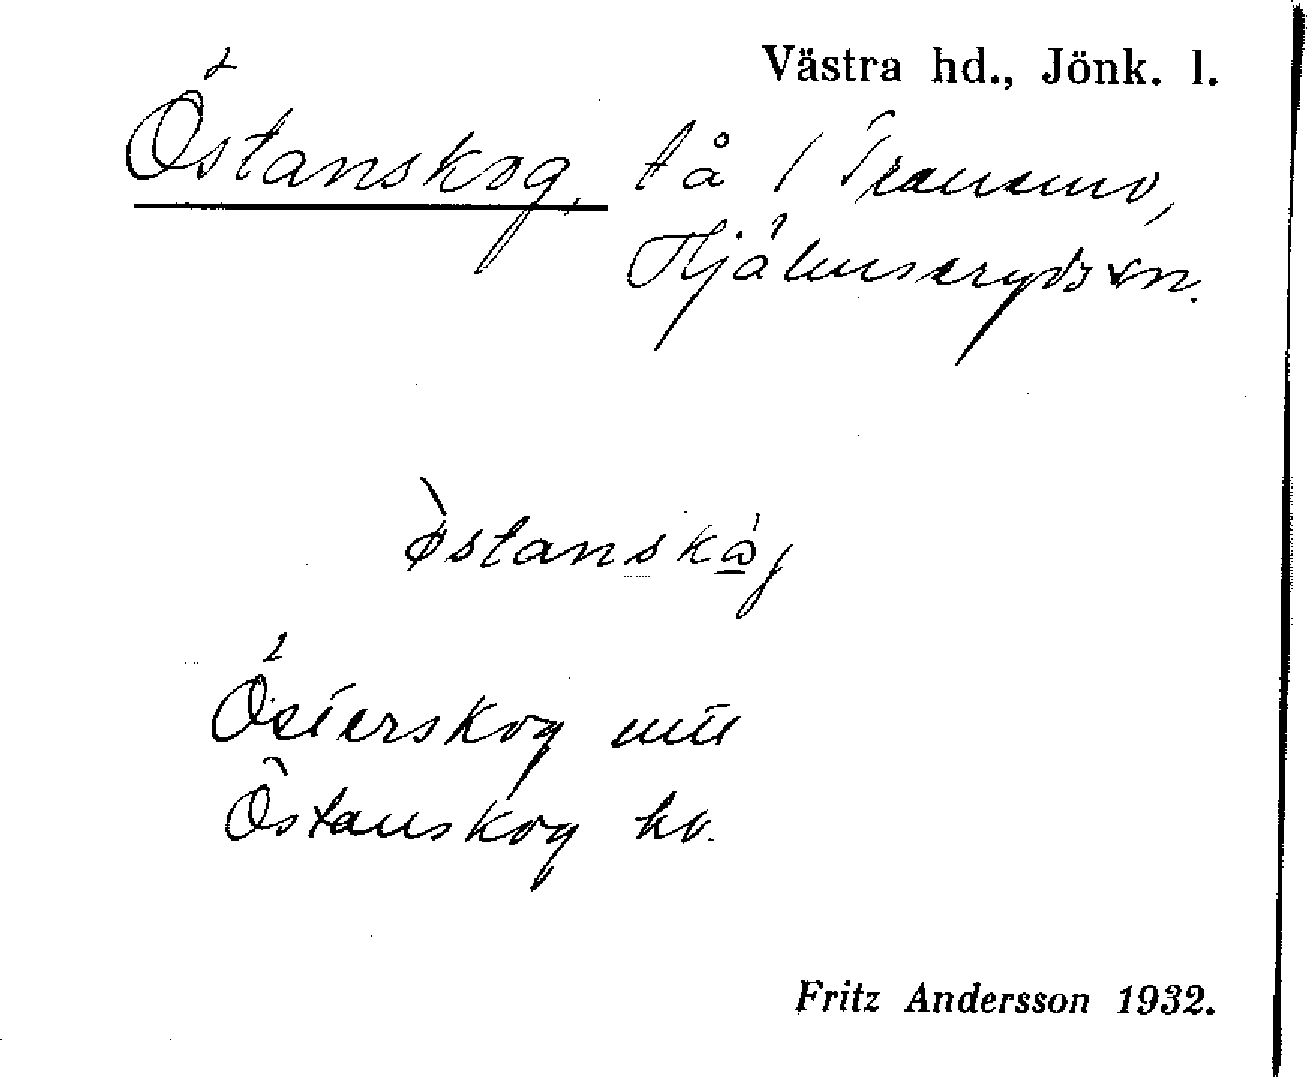 Västra hd., Jönk. l.
Östanskog, tå / Tranemo,
Hjälmseryds sn.
østanskåj
Österskog
Östanskog hv.
Fritz Andersson 1932.